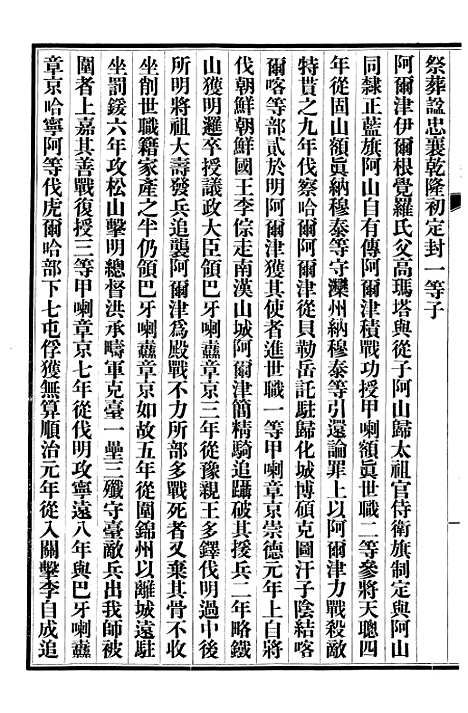 祭葬諡忠襄乾隆初定封一等子
阿爾津伊爾根覺羅氏父高瑪塔與從子阿山歸太祖官侍衛旗制定與阿山
同隸正藍旗阿山自有傳阿爾津積戰功授甲喇額眞世職二等參將天聰四
年從固山額眞納穆泰等守灤州納穆泰等引還論罪上以阿爾津力戰殺敵
特貰之九年伐察哈爾阿爾津從貝勒岳託駐歸化城博碩克圖汗子陰結喀
爾喀等部貳於明阿爾津獲其使者進世職一等甲喇章京崇德元年上自將
伐朝鮮朝鮮國王李倧走南漢山城阿爾津簡精騎追躡破其援兵二年略鐵
山獲明邏卒授議政大臣領巴牙喇纛章京三年從豫親王多鐸伐明過中後
所明將祖大壽發兵追襲阿爾津爲殿戰不力所部多戰死者又棄其骨不收
坐創世職籍家產之半仍領巴牙喇纛章京如故五年從圍錦州以離城遠駐
坐罰鍰六年攻松山擊明總督洪承疇軍克臺一壘三殲守臺敵兵出我師被
圍者上嘉其善戰復授三等甲喇章京七年從伐明攻寧遠八年與巴牙喇纛
章京哈寧阿等伐虎爾哈部下七屯俘獲無算順治元年從入關擊李自成追